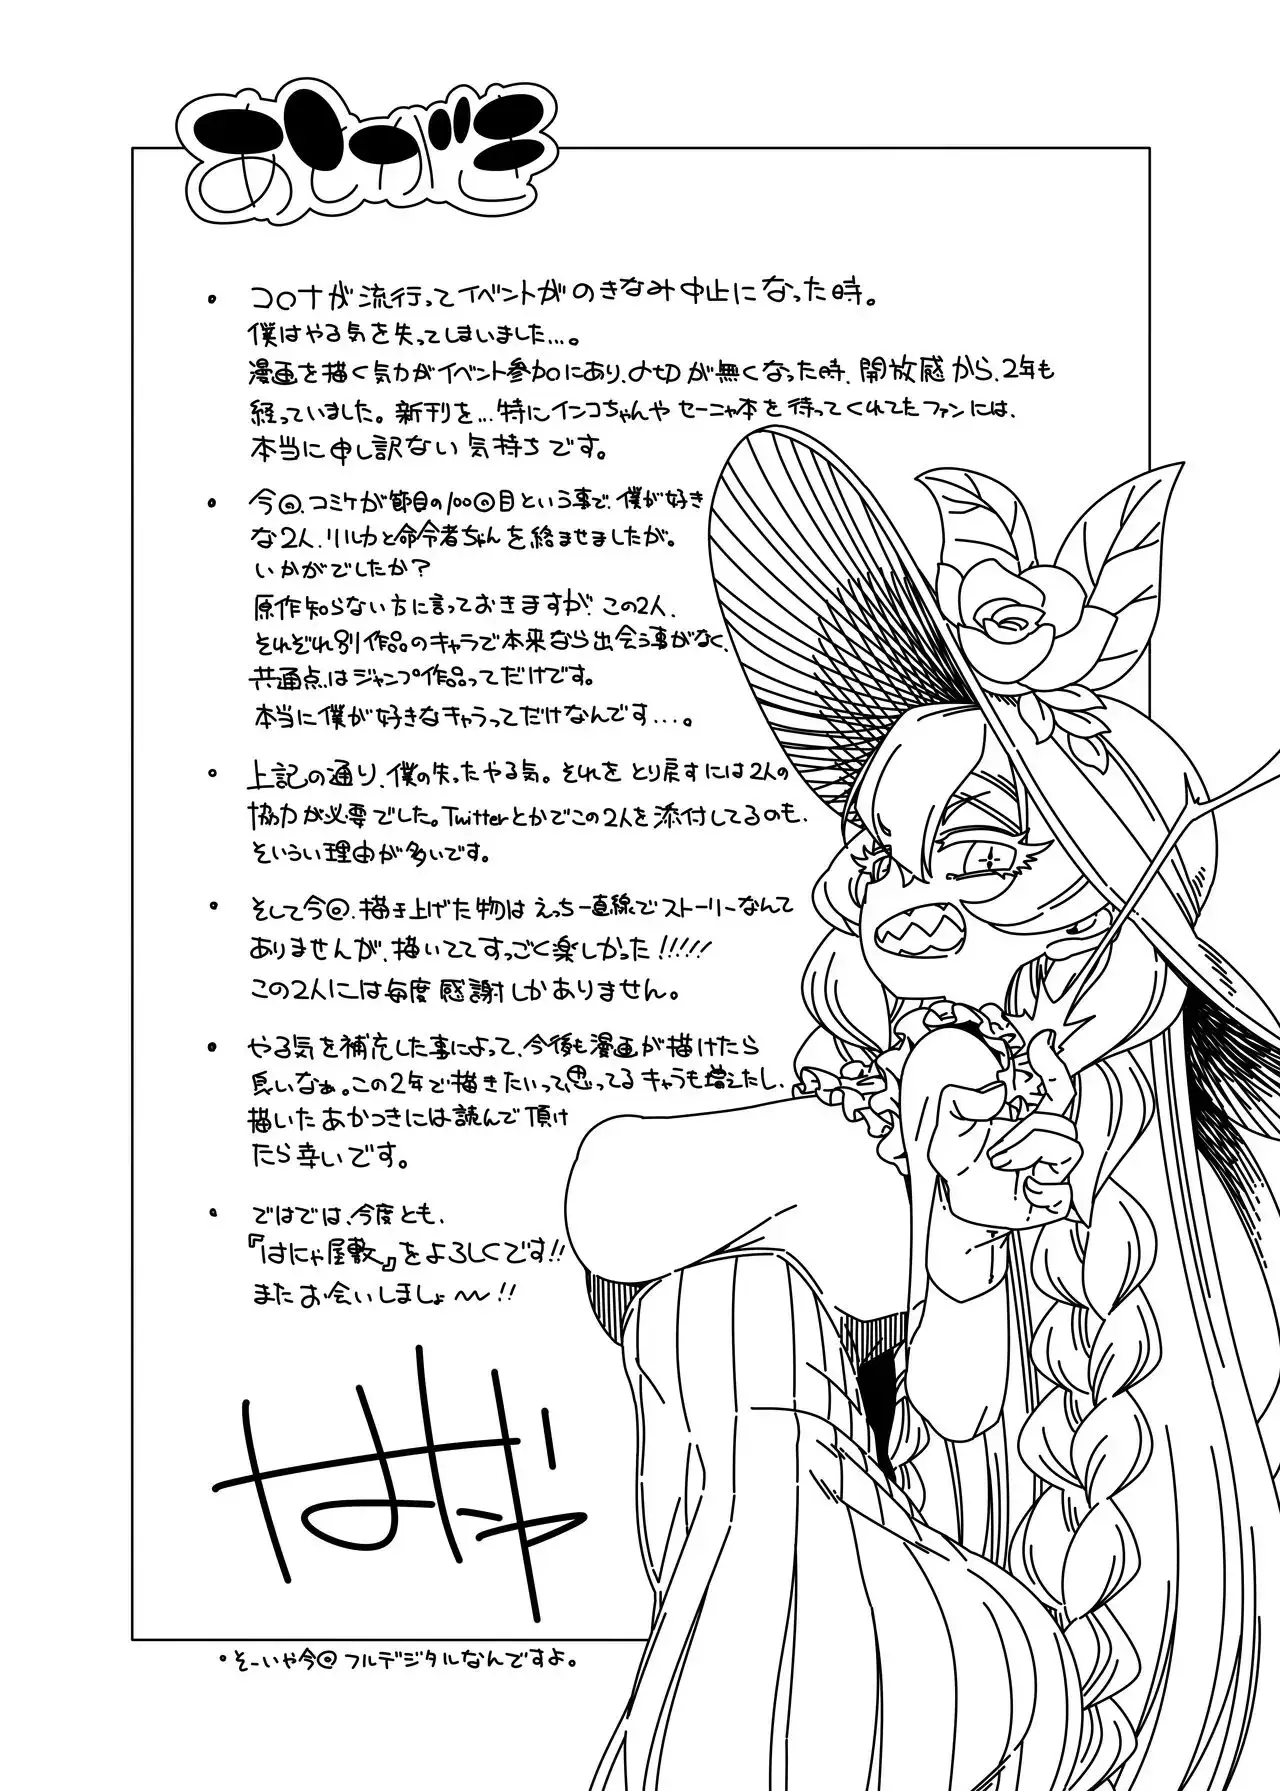 あとがき
・コロナが流行ってイベントがのきなみ中止になった時。
僕はやる気を失ってしまいました...。
漫画を描く気力がイベント参加にあり、〆切が無くなった時、開放感から、2年も
経っていました。新刊を...特にインコちゃんやセーニャ本を待ってくれてたファンには、
本当に申し訳ない気持ちです。
・今回、コミケが節目の100回目という事で、僕が好き
な2人、リルカと命令者ちゃんを絡ませましたが。
いかがでしたか?
原作知らない方に言っておきますが、この2人、
それぞれ別作品のキャラで本来なら出会う事がなく、
共通点はジャンプ作品ってだけです。
本当に僕が好きなキャラってだけなんです...。
・上記の通り、僕の失ったやる気。それをとり戻すには2人の
協力が必要でした。Twitterとかでこの2人を添付してるのも、
そういうい理由が多いです。
・そして今回、描き上げた物はえっち一直線でストーリーなんて
ありませんが、描いててすっごく楽しかった!!!!!
この2人には毎度感謝しかありません。
・やる気を補充した事によって、今後も漫画が描けたら
良いなぁ。この2年で描きたいって思ってるキャラも増えたし、
描いたあかつきには読んで頂け
たら幸いです。
・ではでは、今度とも、
『はにゃ屋敷』をよろしくです!!
またお会いしましょ〜〜!!
はにゃ
・そーいや今回フルデジタルなんですよ。